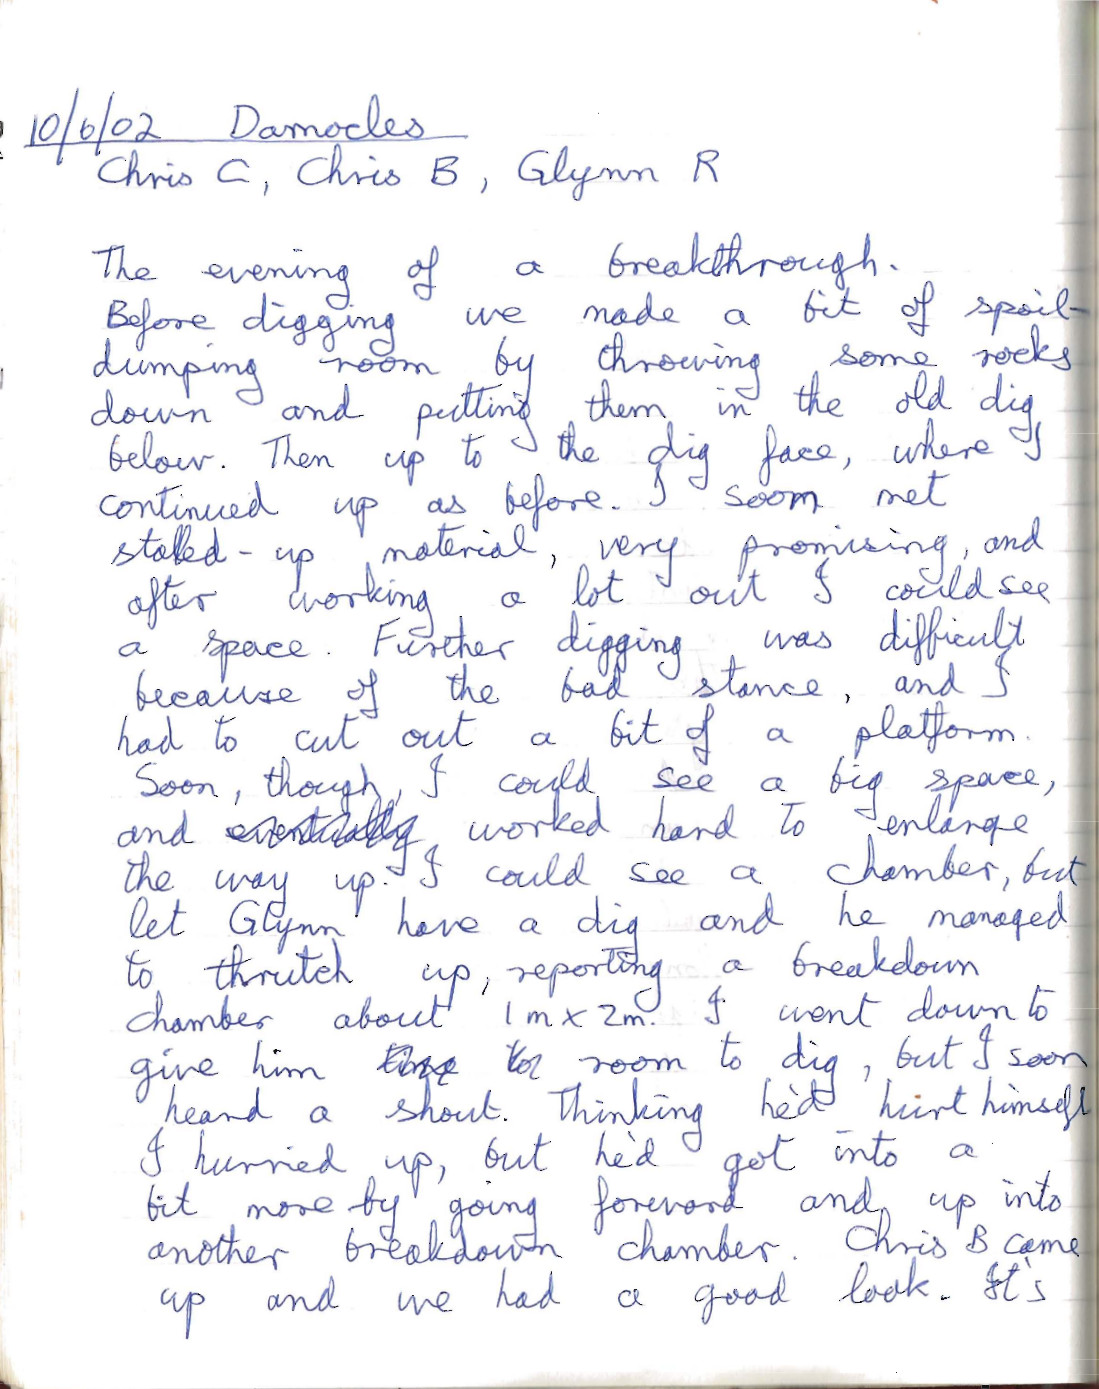 10/6/02 Damocles
Chris C, Chris B, Glynn R
The evening of a breakthrough.
Before digging we made a bit of spoil-
dumping room by throwing some rocks
down and putting them in the old dig
below. Then up to the dig face, where I
continued up as before. I soon met
stalled-up material, very promising, and
after working a lot out I could see
a space. Further digging was difficult
because of the bad stance, and I
had to cut out a bit of a platform.
Soon, though, I could see a big space,
and eventually worked hard to enlarge
the way up. I could see a chamber, but
let Glynn have a dig and he managed
to thrutch up, reporting a breakdown
chamber about 1m x 2m. I went down to
give him room to dig, but I soon
heard a shout. Thinking he'd hurt himself
I hurried up, but he'd got into a
bit more by going forward and up into
another breakdown chamber. Chris B came
up and we had a good look. It's